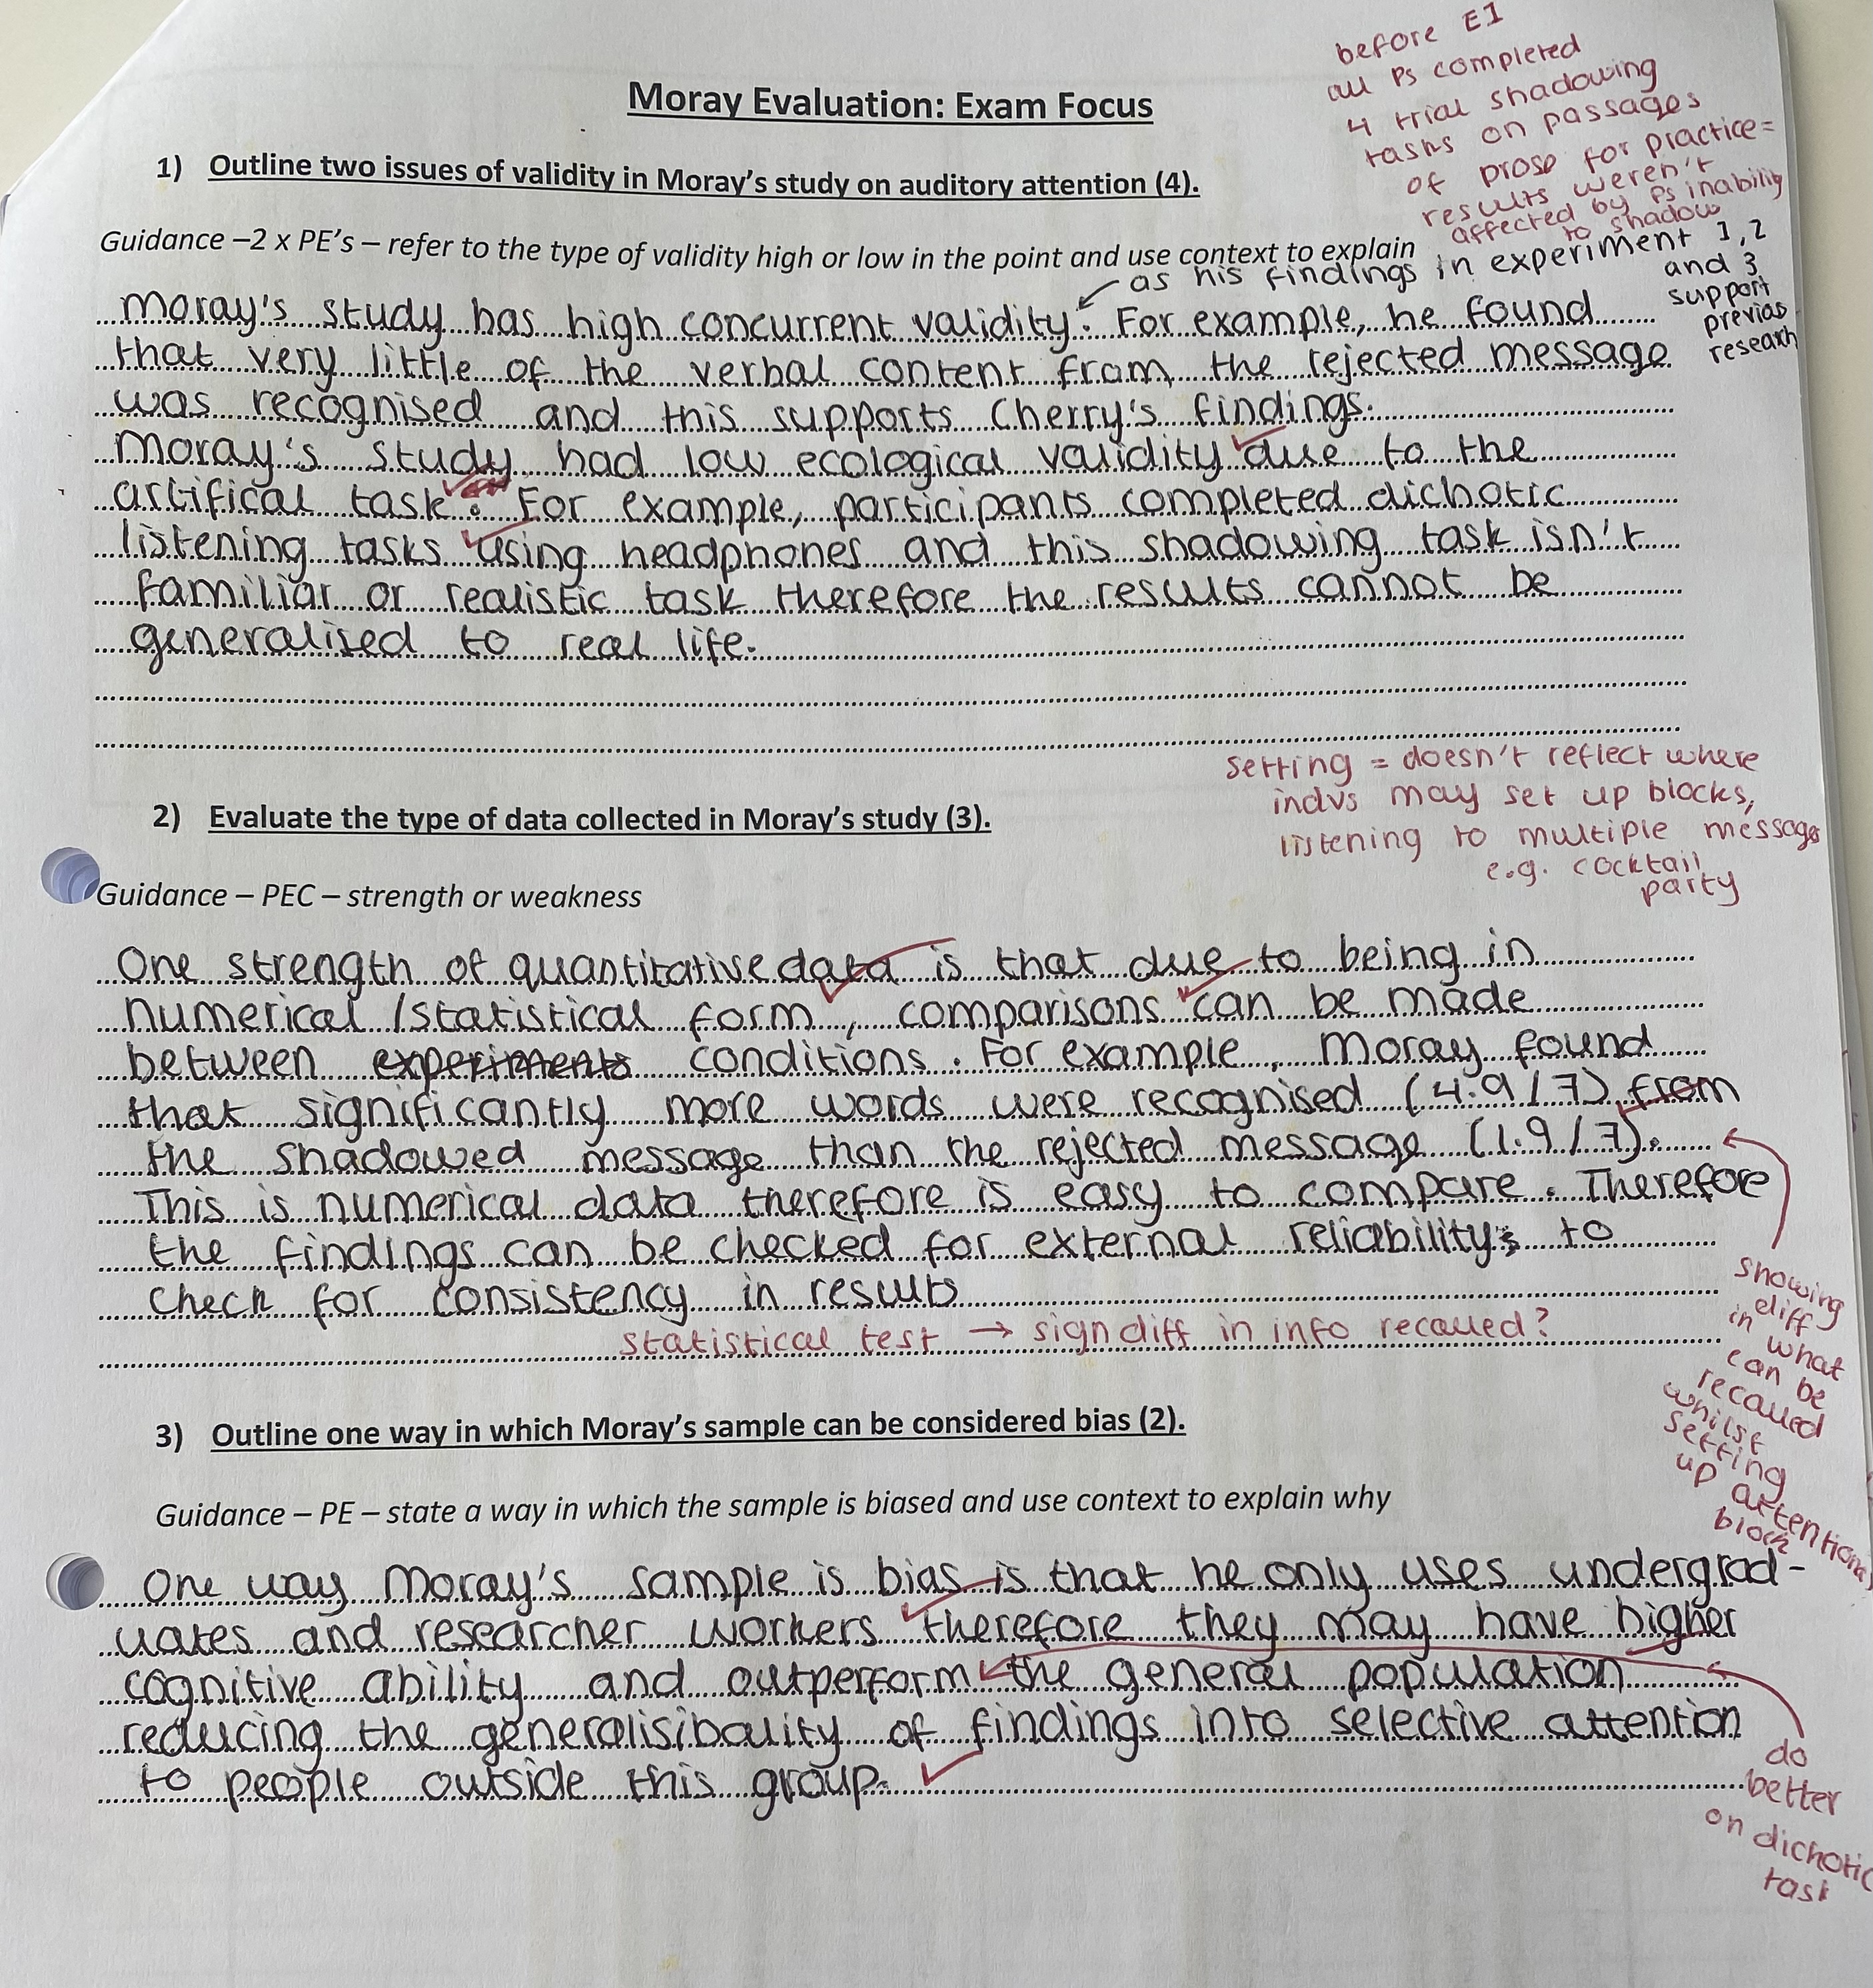 before E1
all Ps completed
4 trial shadowing
tasks on passages
of prose for practice =
results weren't
affected by Ps inability
to shadow
Moray Evaluation: Exam Focus
1) Outline two issues of validity in Moray's study on auditory attention (4).
Guidance –2 x PE's – refer to the type of validity high or low in the point and use context to explain
as his findings in experiment 1,2
and 3
support
previas
research
Moray's study has high concurrent validity. For example, he found
that very little of the verbal content from the rejected message
was recognised and this supports Cherry's findings.
Moray's study had low ecological validity due to the
artifical task. For example, participants completed dichotic
listening tasks using headphones and this shadowing task isn't
familiar or realistic task therefore the results cannot be
generalised to real life.
setting = doesn't reflect where
indvs may set up blocks,
listening to multiple messages
e.g. cocktail
party
2) Evaluate the type of data collected in Moray's study (3).
Guidance – PEC – strength or weakness
One strength of quantitative data is that due to being in
numerical /statistical form, comparisons can be made
between experiments conditions. For example, Moray found
that significantly more words were recognised (4.9/7) from
the shadowed message than the rejected message (1.9/7).
This is numerical data therefore is easy to compare. Therefore
the findings can be checked for external reliability; to
check for consistency in results
statistical test → sign diff in info recalled?
showing
diff
in what
can be
recalled
whilst
setting
up attentional
block
3) Outline one way in which Moray's sample can be considered bias (2).
Guidance – PE – state a way in which the sample is biased and use context to explain why
One way Moray's sample is bias is that he only uses undergrad-
uates and researcher workers therefore they may have higher
cognitive ability and outperform the general population
reducing the generalisibality of findings into selective attention
to people outside this group.
do
better
on dichotic
task